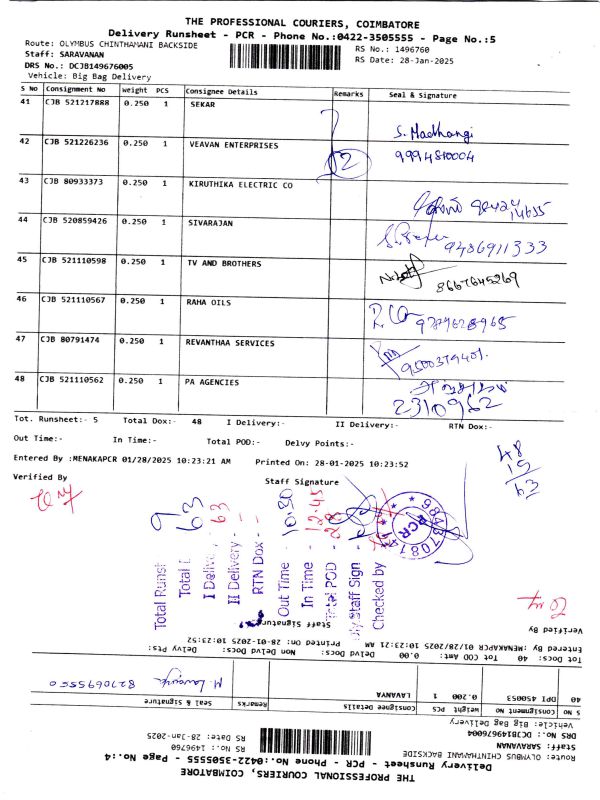 THE PROFESSIONAL COURIERS, COIMBATORE
Delivery Runsheet - PCR - Phone No.:0422-3505555 - Page No.:5
Route: OLYMBUS CHINTHAMANI BACKSIDE
RS No.: 1496760
Staff: SARAVANAN
RS Date: 28-Jan-2025
DRS No.: DCJB149676005
Vehicle: Big Bag Delivery
S No Consignment No Weight PCS Consignee Details Remarks Seal & Signature
41 CJB 521217888 0.250 1 SEKAR S. Madhangi
42 CJB 521226236 0.250 1 VEAVAN ENTERPRISES 2 9994810004
43 CJB 80933373 0.250 1 KIRUTHIKA ELECTRIC CO
44 CJB 520859426 0.250 1 SIVARAJAN 9486911333
45 CJB 521110598 0.250 1 TV AND BROTHERS 8667645269
46 CJB 521110567 0.250 1 RAHA OILS 9789628965
47 CJB 80791474 0.250 1 REVANTHAA SERVICES 9500379401.
48 CJB 521110562 0.250 1 PA AGENCIES 2310962
Tot. Runsheet:- 5 Total Dox:- 48 I Delivery:- II Delivery:- RTN Dox:-
Out Time:- In Time:- Total POD:- Delvy Points:-
Entered By :MENAKAPCR 01/28/2025 10:23:21 AM Printed On: 28-01-2025 10:23:52
Verified By Staff Signature
48
15
63
Total Runsh 9
Total D 63
I Delivery - 63
II Delivery -
RTN Dox -
Out Time - 10.30
In Time - 12.45
Total POD - 28
Staff Sign
Checked by
PCR
Verified By Staff Signature
Entered By :MENAKAPCR 01/28/2025 10:23:21 AM Printed On: 28-01-2025 10:23:52
Tot Docs: 40 Tot COD Amt: 0.00 Delvd Docs: Non Delvd Docs: Delvy Pts:
40 DPI 453053 0.200 1 LAVANYA 8270695550
S No Consignment No Weight PCS Consignee Details Remarks Seal & Signature
Vehicle: Big Bag Delivery
DRS No.: DCJB149676004
RS Date: 28-Jan-2025
Staff: SARAVANAN
RS No.: 1496760
Route: OLYMBUS CHINTHAMANI BACKSIDE
Delivery Runsheet - PCR - Phone No.:0422-3505555 - Page No.:4
THE PROFESSIONAL COURIERS, COIMBATORE